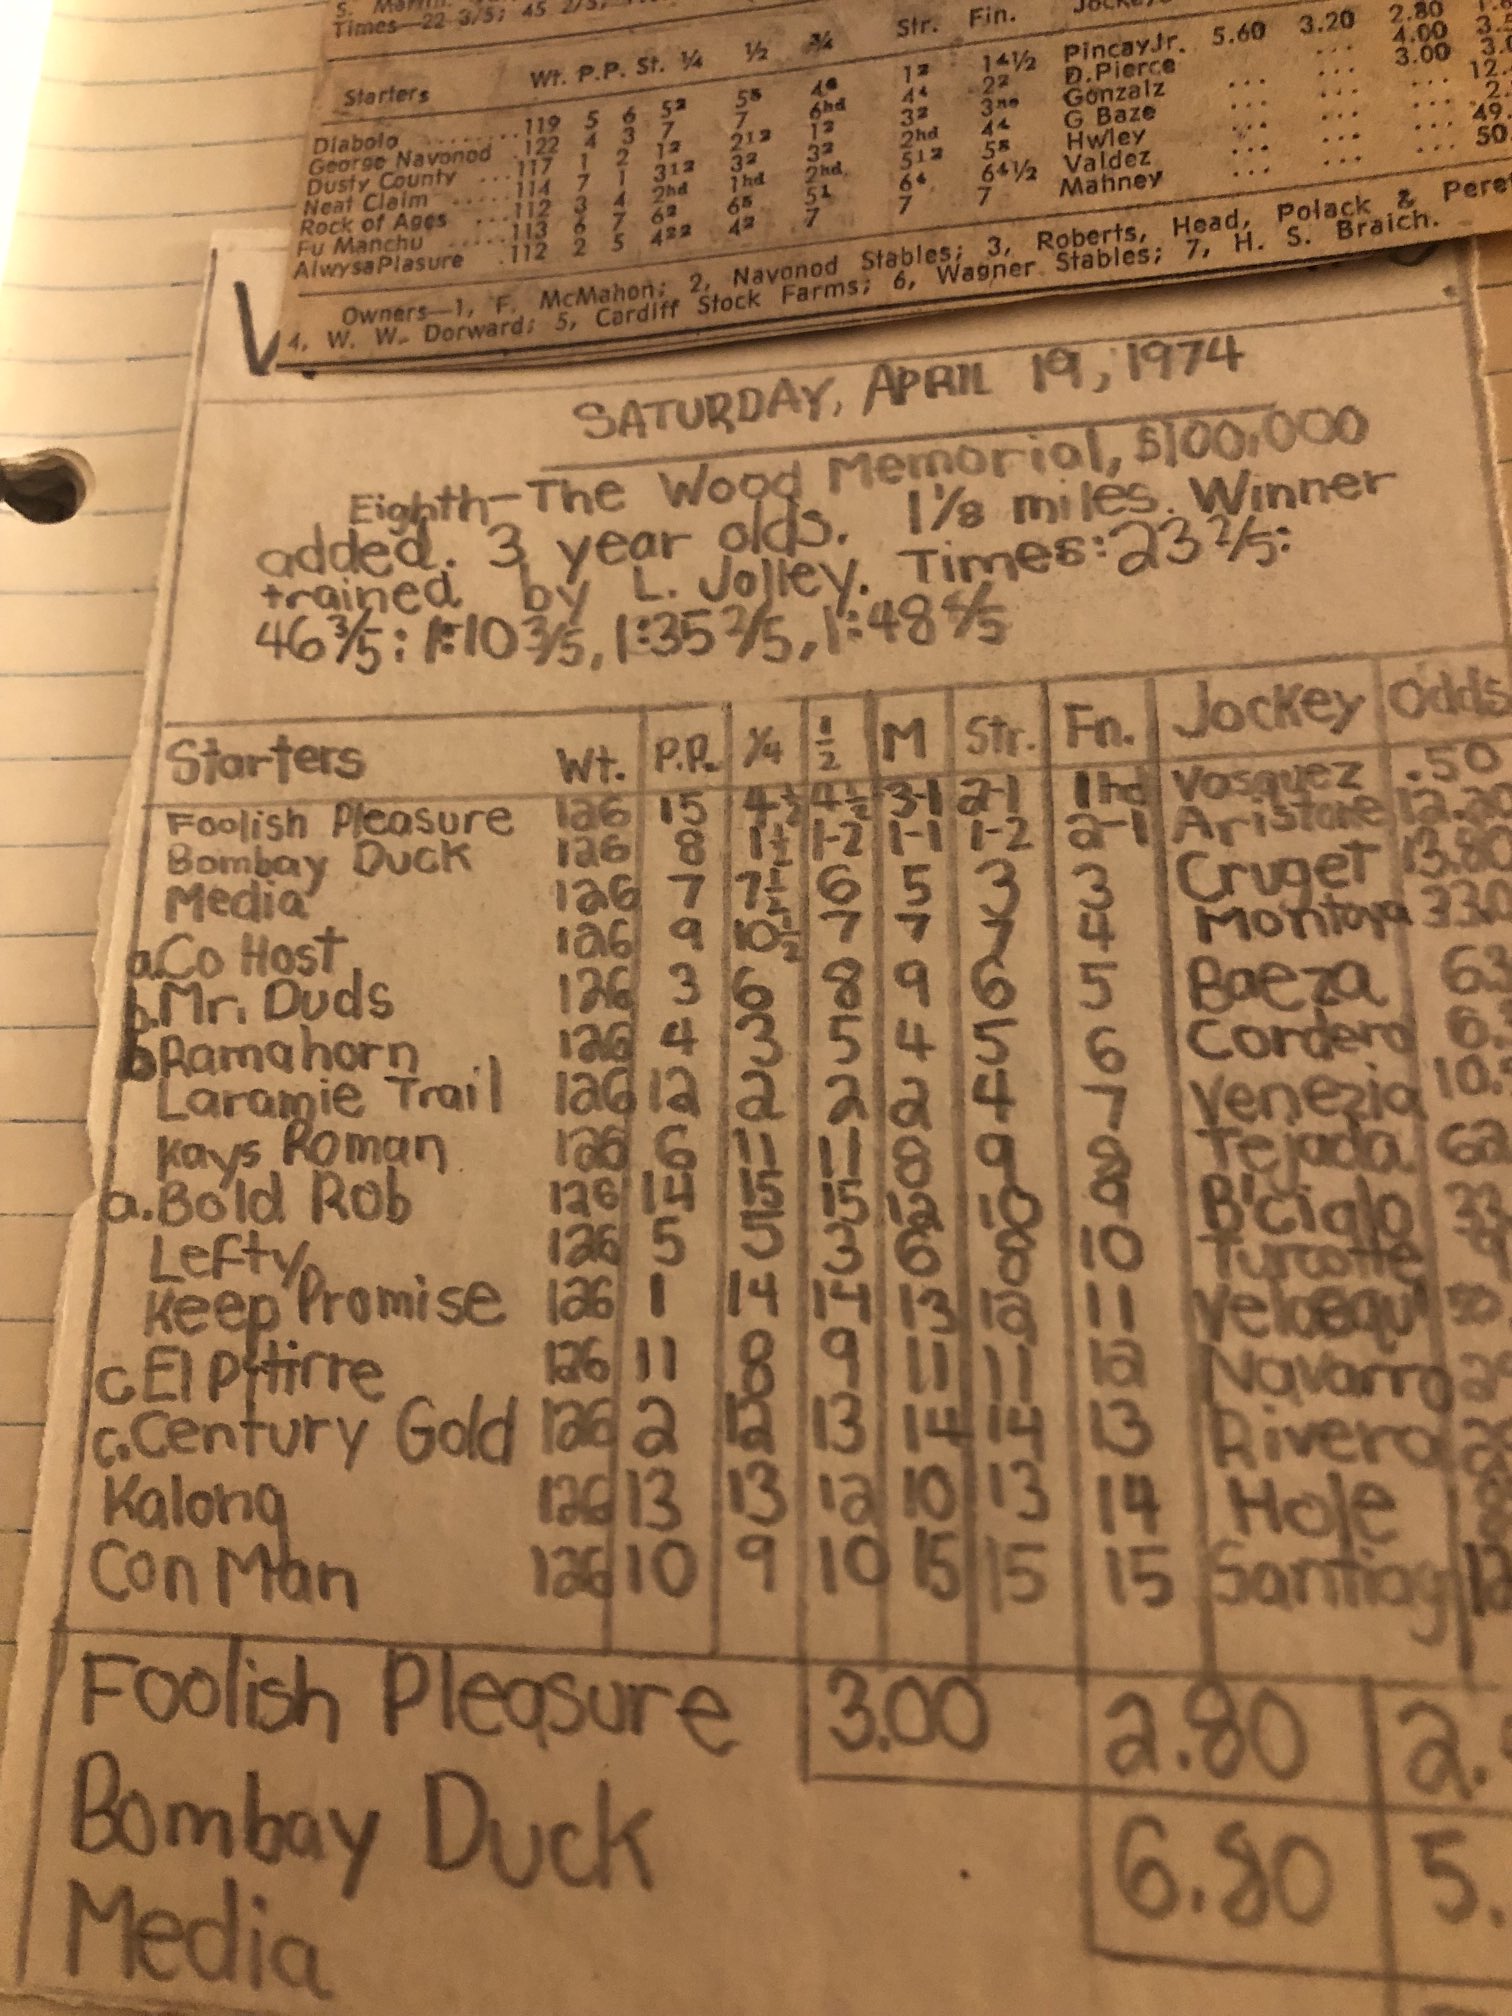 Times—22 3/5; 45 2/5,
Starters Wt. P.P. St. ¼ ½ ¾ Str. Fin.
Diabolo 119 5 6 5² 5⁵ 4⁶ 1² 1⁴½ PincayJr. 5.60 3.20 2.80
George Navonod 122 4 3 7 7 6hd 4⁴ 2² D.Pierce ... ... 4.00
Dusty County 117 1 2 1² 2¹² 1² 3² 3ⁿᵒ Gonzalz ... ... 3.00
Neat Claim 114 7 1 3¹² 3² 3² 2hd 4⁴ G Baze ... ... ... 12.
Rock of Ages 112 3 4 2hd 1hd 2hd 5¹² 5⁵ Hwley ... ... ... 2.
Fu Manchu 113 6 7 6² 6⁵ 5¹ 6⁴ 6⁴½ Valdez ... ... ... 49.
AlwysaPlasure 112 2 5 4²² 4² 7 7 7 Mahney ... ... ... 50.
Owners—1, F. McMahon; 2, Navonod Stables; 3, Roberts, Head, Polack & Peret
4, W. W. Dorward; 5, Cardiff Stock Farms; 6, Wagner Stables; 7, H. S. Braich.
SATURDAY, APRIL 19, 1974
Eighth-The Wood Memorial, $100,000
added. 3 year olds. 1⅛ miles. Winner
trained by L. Jolley. Times: 23 2/5:
46 3/5: 1:10 3/5, 1:35 2/5, 1:48 4/5
Starters Wt. P.P. ¼ ½ M Str. Fn. Jockey Odds
Foolish Pleasure 126 15 4½ 4½ 3-1 2-1 1hd Vosquez .50
Bombay Duck 126 8 1½ 1-2 1-1 1-2 2-1 Aristone 12.20
Media 126 7 7½ 6 5 3 3 Cruget 13.80
a.Co Host 126 9 10½ 7 7 7 4 Montoya 33.0
b.Mr. Duds 126 3 6 8 9 6 5 Baeza 6.3
b Ramahorn 126 4 3 5 4 5 6 Cordero 6.
Laramie Trail 126 12 2 2 2 4 7 Venezia 10.
Kays Roman 126 6 11 11 8 9 8 Tejada 62
a.Bold Rob 126 14 15 15 12 10 9 B'ciglo 33
Lefty 126 5 5 3 6 8 10 Turcotte 9
Keep Promise 126 1 14 14 13 12 11 50
c El Pitirre 126 11 8 9 11 11 12 Navarro 2
c.Century Gold 126 2 12 13 14 14 13 Rivera 2
Kalong 126 13 13 12 10 13 14 Hole
Con Man 126 10 9 10 15 15 15 Santiag 12
Foolish Pleasure 3.00 2.80 2.
Bombay Duck 6.80 5.
Media